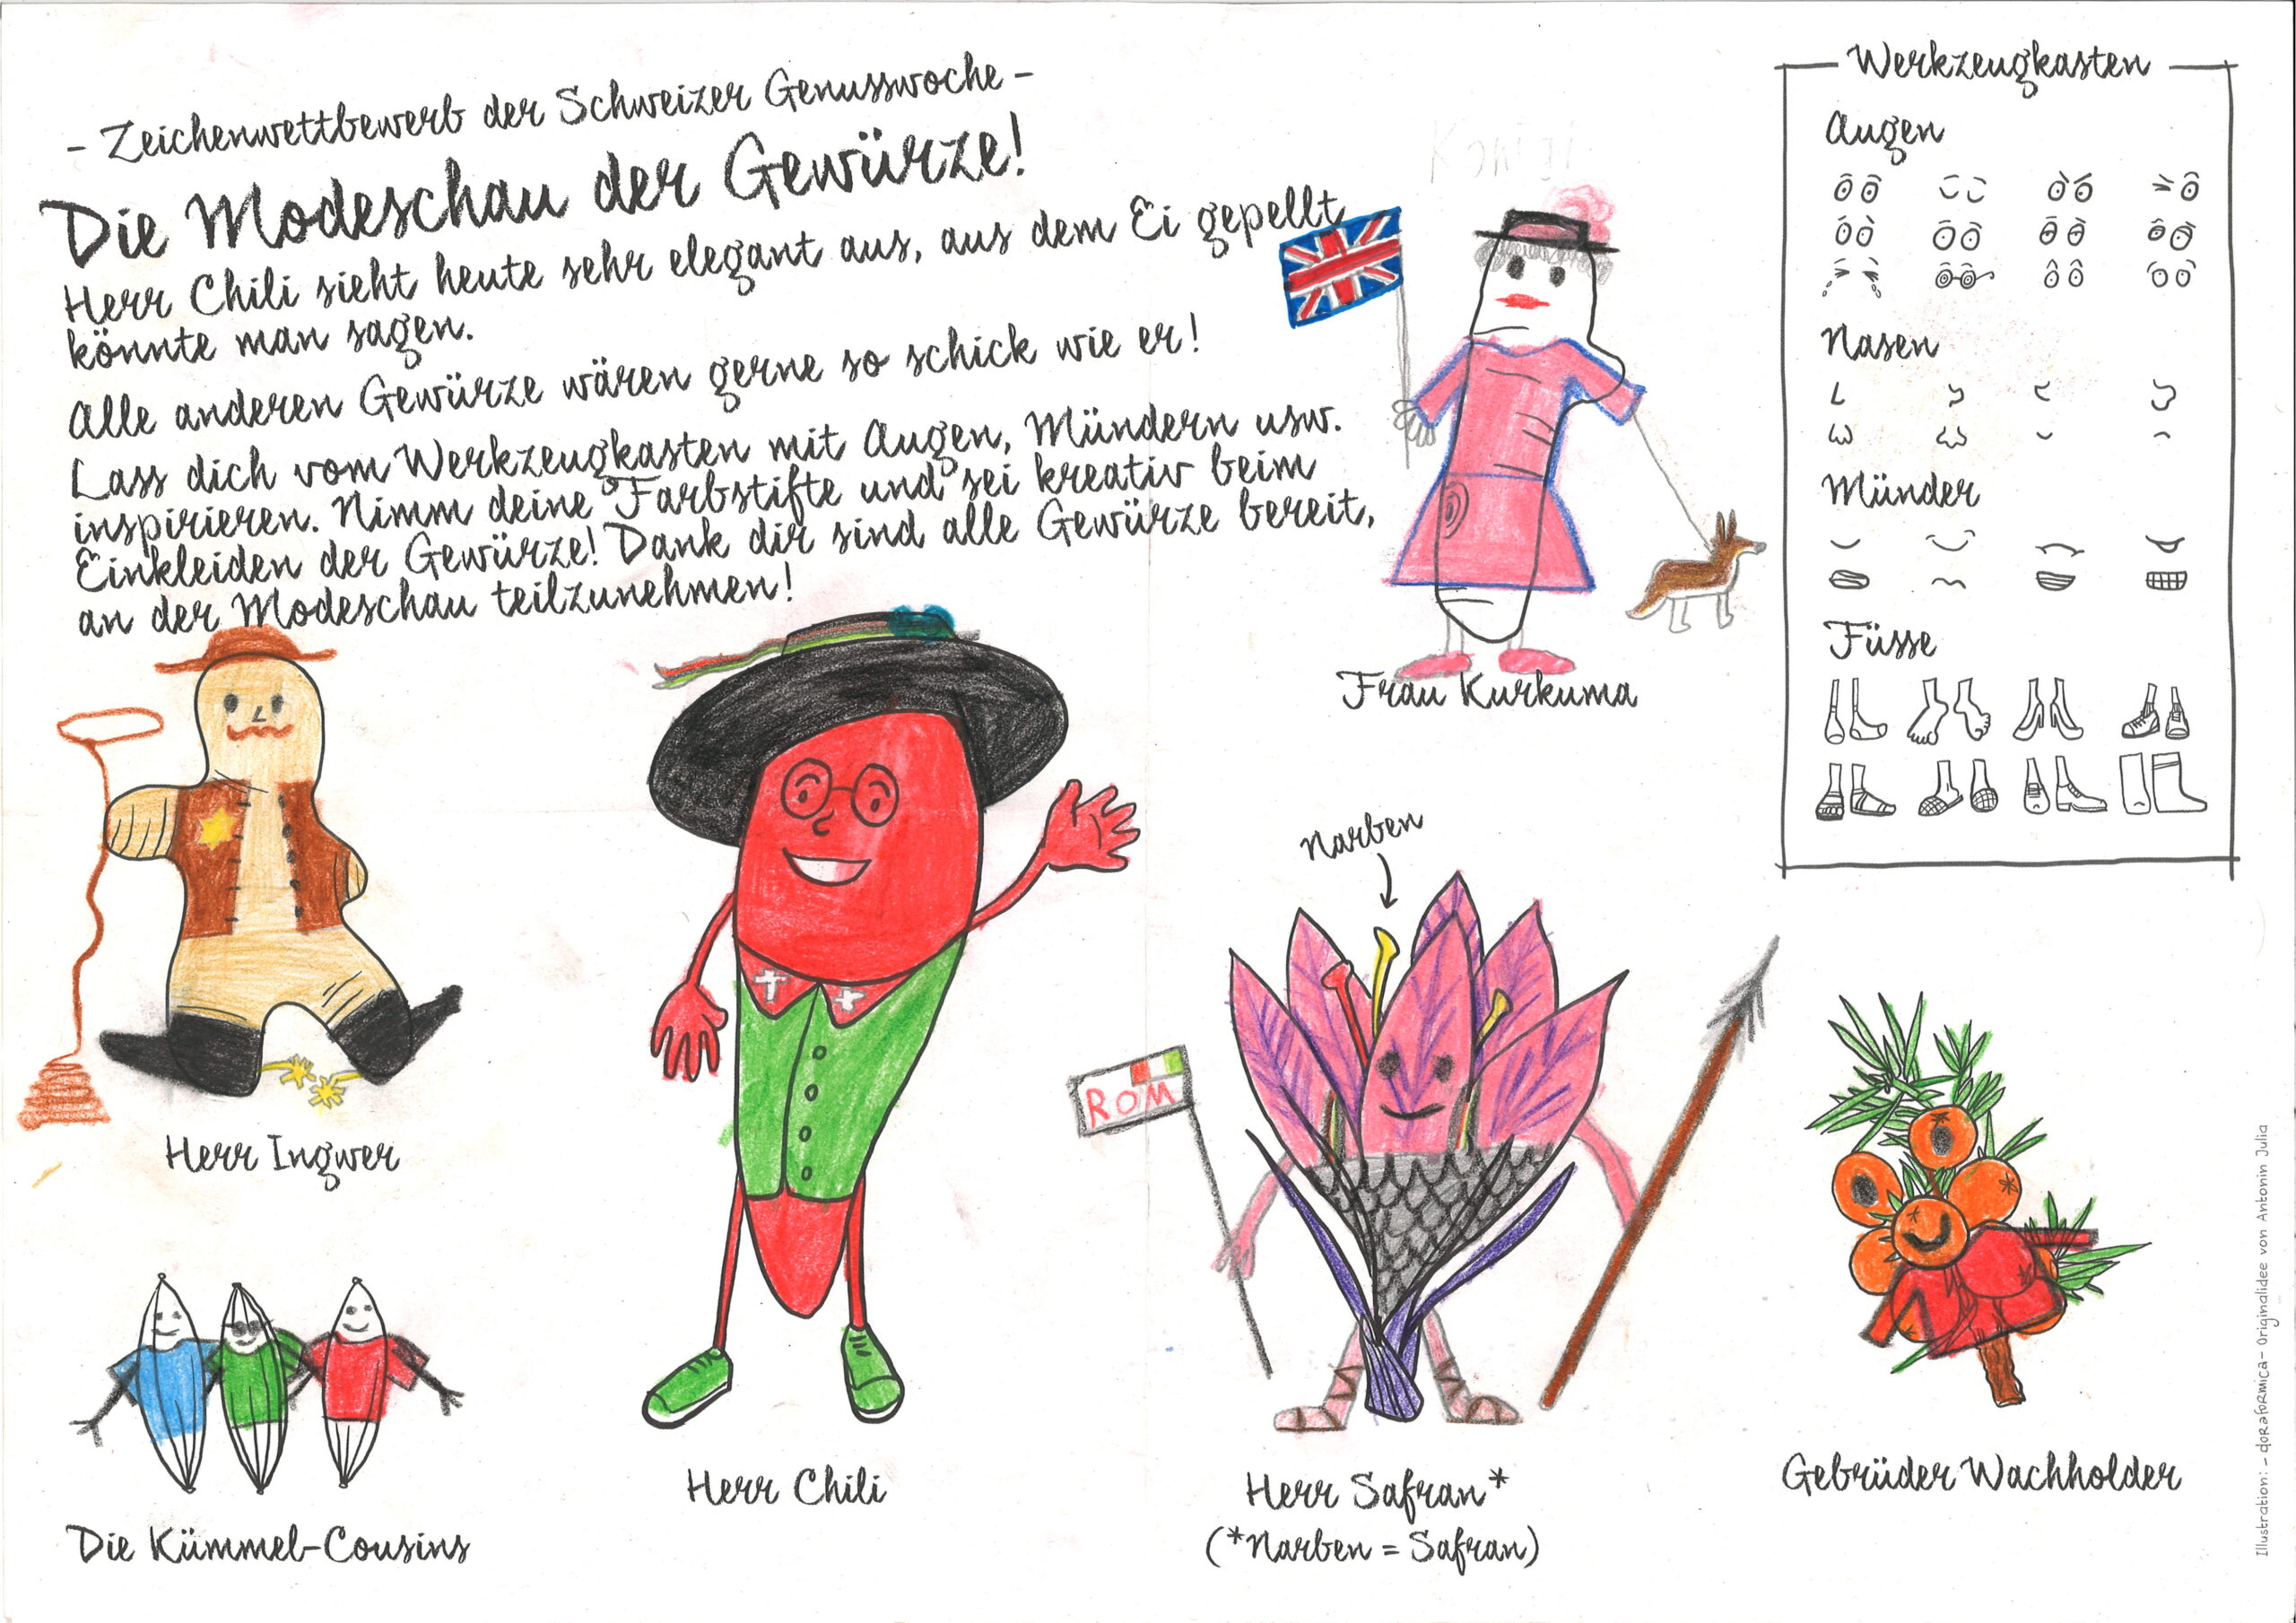 - Zeichenwettbewerb der Schweizer Genusswoche -
Die Modeschau der Gewürze!
Herr Chili sieht heute sehr elegant aus, aus dem Ei gepellt
könnte man sagen.
Alle anderen Gewürze wären gerne so schick wie er!
Lass dich vom Werkzeugkasten mit Augen, Mündern usw.
inspirieren. Nimm deine Farbstifte und sei kreativ beim
Einkleiden der Gewürze! Dank dir sind alle Gewürze bereit,
an der Modeschau teilzunehmen!
Werkzeugkasten
Augen
Nasen
Münder
Füsse
Frau Kurkuma
Narben
ROM
Herr Ingwer
Die Kümmel-Cousins
Herr Chili
Herr Safran*
(*Narben = Safran)
Gebrüder Wachholder
Illustration: - doraformica - Originalidee von Antonin Julia